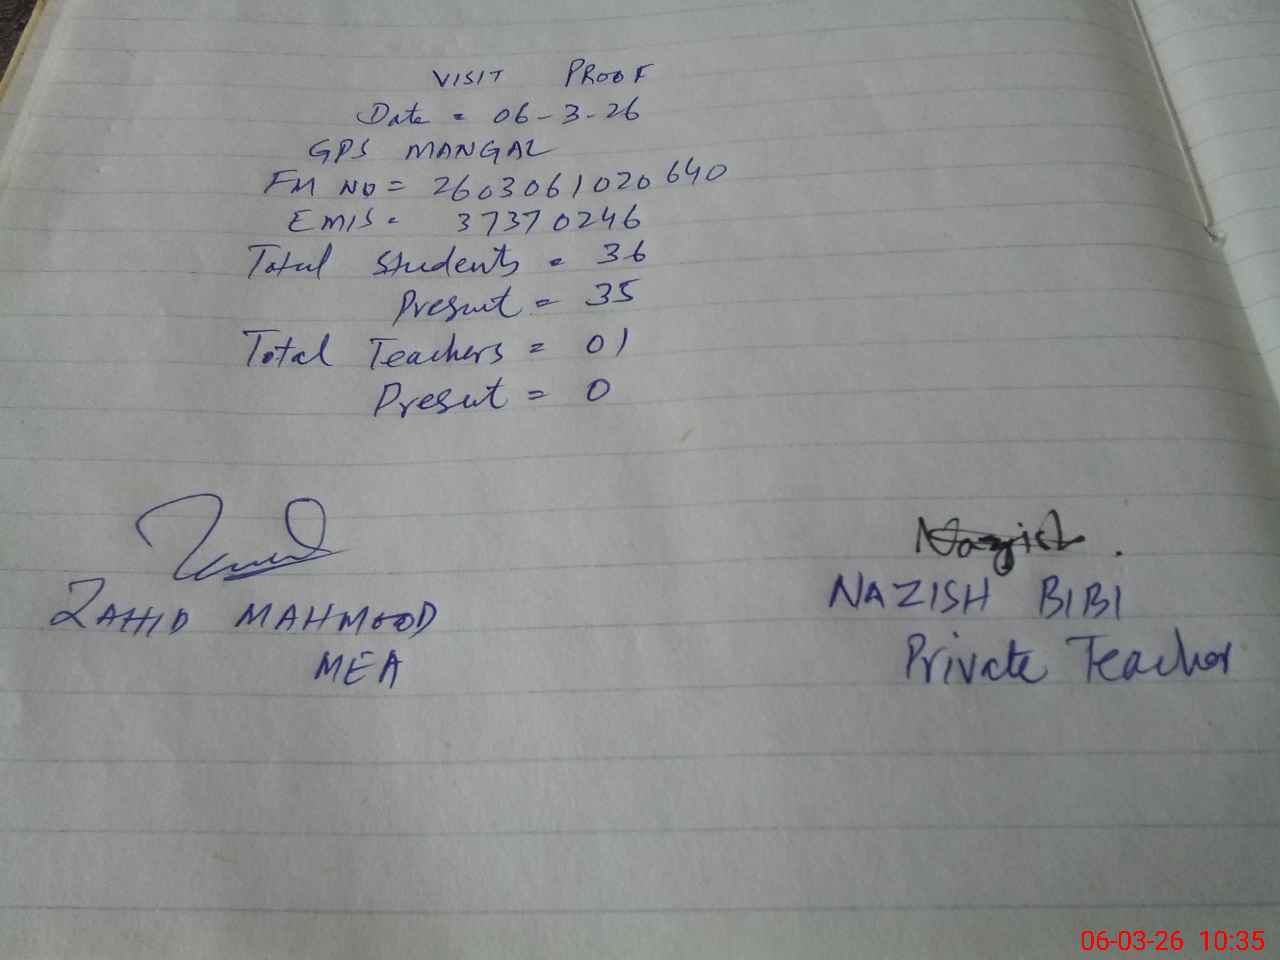 VISIT PROOF
Date = 06-3-26
GPS MANGAL
FM NO = 2603061020640
EMIS = 37370246
Total Students = 36
Present = 35
Total Teachers = 01
Present = 0
Nazish.
ZAHID MAHMOOD
MEA
NAZISH BIBI
Private Teacher
06-03-26 10:35